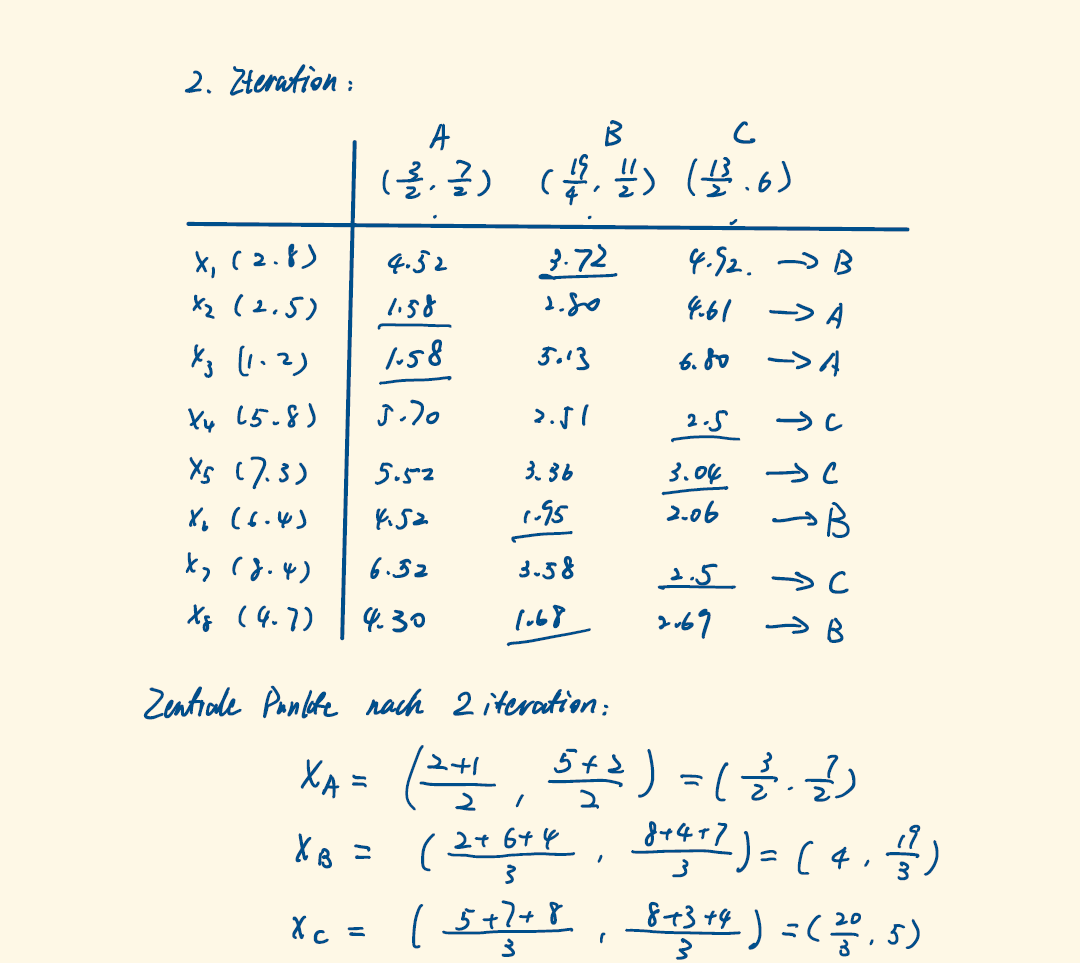 2. Iteration:
A B C
(3/2, 7/2) (19/4, 11/2) (13/2, 6)
X₁ (2.8) 4.52 3.72 4.92. → B
X₂ (2.5) 1.58 2.80 4.61 → A
X₃ (1.2) 1.58 5.13 6.80 → A
X₄ (5.8) 5.70 2.51 2.5 → C
X₅ (7.3) 5.52 3.36 3.04 → C
X₆ (6.4) 4.52 1.95 2.06 → B
X₇ (8.4) 6.52 3.58 2.5 → C
X₈ (4.7) 4.30 1.68 2.69 → B
Zentrale Punkte nach 2 iteration:
X_A = ((2+1)/2, (5+2)/2) = (3/2, 7/2)
X_B = ((2+6+4)/3, (8+4+7)/3) = (4, 19/3)
X_C = ((5+7+8)/3, (8+3+4)/3) = (20/3, 5)